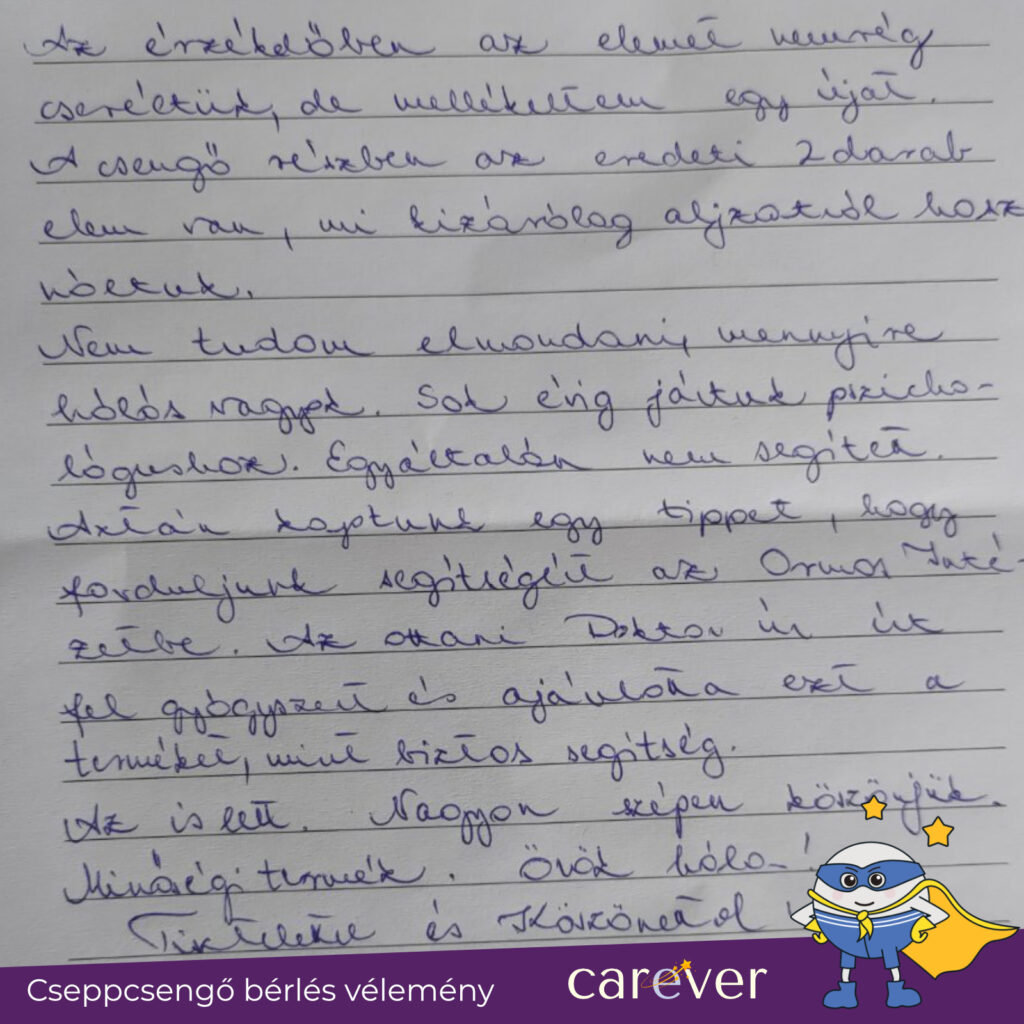 Az érzékelőben az elemet nemrég
cseréltük, de mellékeltem egy újat.
A csengő részben az eredeti 2 darab
elem van, mi kizárólag aljzatról hasz
náltuk.
Nem tudom elmondani, mennyire
hálás vagyok. Sok évig jártunk pszicho-
lógushoz. Egyáltalán nem segített.
Aztán kaptunk egy tippet, hogy
forduljunk segítségért az Ormos Inté-
zetbe. Az ottani Doktor úr írt
fel gyógyszert és ajánlotta ezt a
terméket, mint biztos segítség.
Az is lett. Nagyon szépen köszönjük.
Minőségi termék. Örök hála!
Tisztelettel és Köszönettel
Cseppcsengő bérlés vélemény
carever